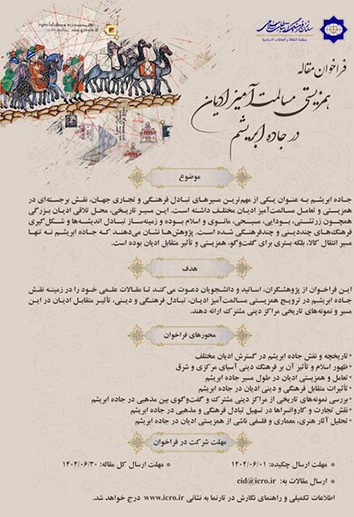 سازمان فرهنگ و ارتباطات اسلامی
فراخوان مقاله
همزیستی مسالمت آمیز ادیان
در جاده ابریشم
موضوع
جاده ابریشم به عنوان یکی از مهم‌ترین مسیرهای تبادل فرهنگی و تجاری جهان، نقش برجسته‌ای در
همزیستی و تعامل مسالمت‌آمیز ادیان مختلف داشته است. این مسیر تاریخی، محل تلاقی ادیان بزرگی
همچون زرتشتی، بودایی، مسیحی، مانوی و اسلام بوده و زمینه‌ساز تبادل اندیشه‌ها و شکل‌گیری
فرهنگ‌های چنددینی و چندفرهنگی شده است. پژوهش‌ها نشان می‌دهند که جاده ابریشم نه تنها
مسیر انتقال کالا، بلکه بستری برای گفت‌وگو، همزیستی و تأثیر متقابل ادیان بوده است.
هدف
این فراخوان از پژوهشگران، اساتید و دانشجویان دعوت می‌کند تا مقالات علمی خود را در زمینه نقش
جاده ابریشم در ترویج همزیستی مسالمت‌آمیز ادیان، تبادل فرهنگی و دینی، تأثیر متقابل ادیان در این
مسیر و نمونه‌های تاریخی مراکز دینی مشترک ارائه دهند.
محورهای فراخوان
* تاریخچه و نقش جاده ابریشم در گسترش ادیان مختلف
* ظهور اسلام و تأثیر آن بر فرهنگ دینی آسیای مرکزی و شرق
* تعامل و همزیستی ادیان در طول مسیر جاده ابریشم
* تأثیرات متقابل فرهنگی و دینی ادیان در جاده ابریشم
* بررسی نمونه‌های تاریخی از مراکز دینی مشترک و گفت‌وگوی بین مذهبی در جاده ابریشم
* نقش تجارت و کاروانسراها در تسهیل تبادل فرهنگی و مذهبی در جاده ابریشم
* تحلیل آثار هنری، معماری و فلسفی ناشی از همزیستی ادیان در جاده ابریشم
مهلت شرکت در فراخوان
* مهلت ارسال چکیده: ۱۴۰۴/۰۶/۰۱ * مهلت ارسال کل مقاله: ۱۴۰۴/۰۶/۳۰
* ارسال مقالات به: cid@icro.ir
اطلاعات تکمیلی و راهنمای نگارش در تارنما به نشانی www.icro.ir درج خواهد شد.